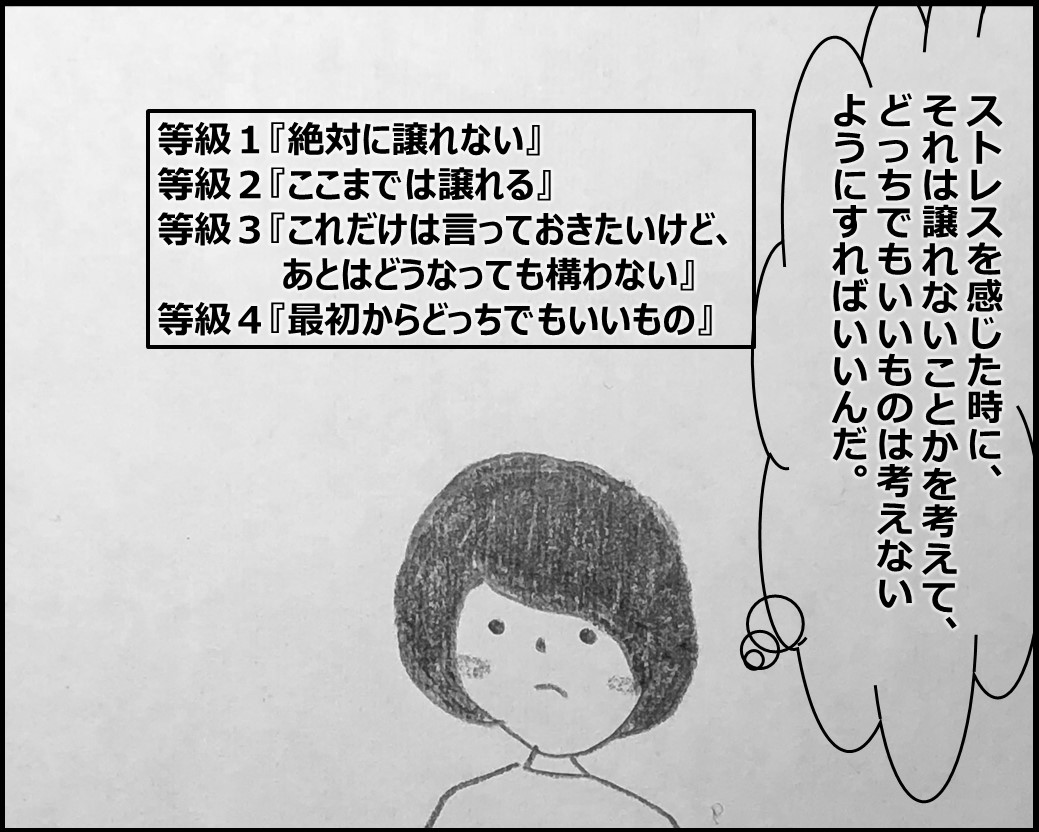 ストレスを感じた時に、
それは譲れないことかを考えて、
どっちでもいいものは考えない
ようにすればいいんだ。
等級１『絶対に譲れない』
等級２『ここまでは譲れる』
等級３『これだけは言っておきたいけど、
あとはどうなっても構わない』
等級４『最初からどっちでもいいもの』